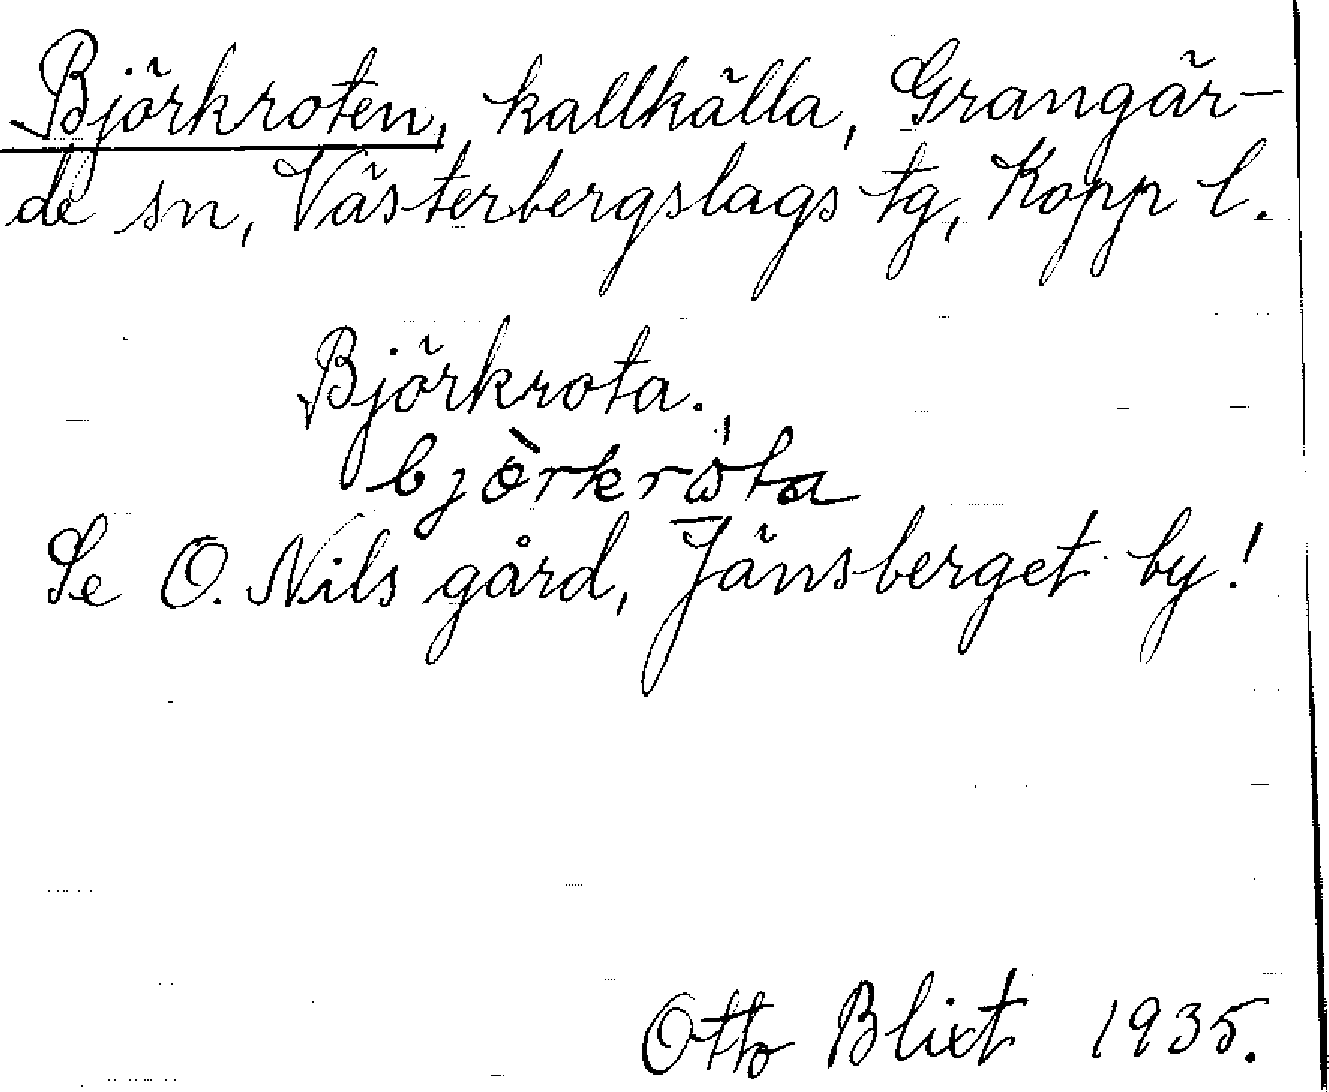 Björkroten, kallkälla, Grangär-
de sn, Västerbergslags tg, Kopp l.
Björkrota.
bjò̱rkrὼta
Se O. Nils gård, Jänsberget by!
Otto Blixt 1935.